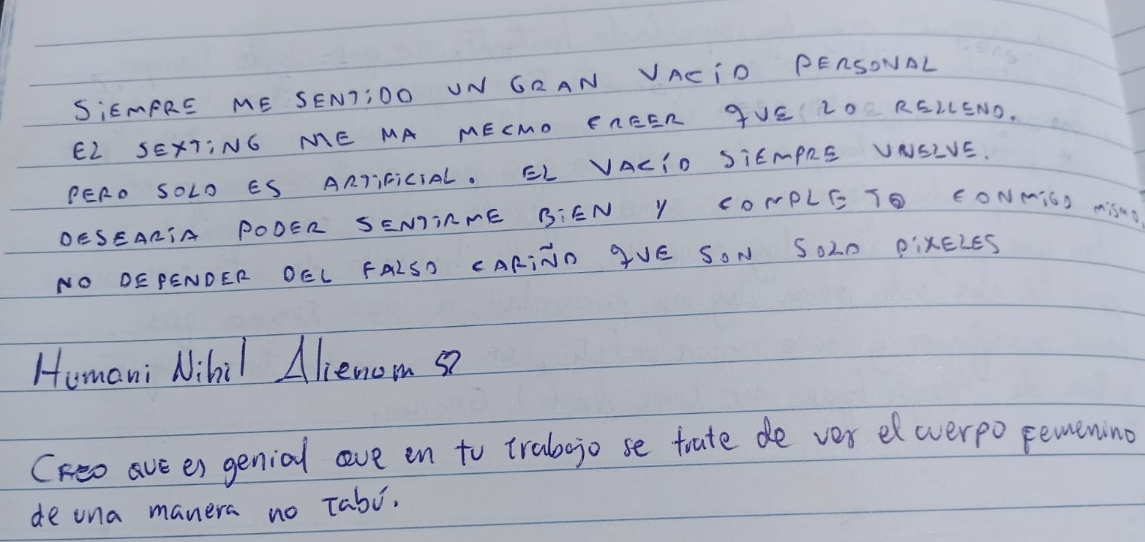 SIEMPRE ME SENTIDO UN GRAN VACÍO PERSONAL
EL SEXTING ME HA HECHO CREER QUE LO RELLENO.
PERO SOLO ES ARTIFICIAL. EL VACÍO SIEMPRE VUELVE.
DESEARÍA PODER SENTIRME BIEN Y COMPLETO CONMIGO MISMO,
NO DEPENDER DEL FALSO CARIÑO QUE SON SOLO PIXELES
Humani Nihil Alienum
CREO QUE es genial QUE en tu trabajo se trate de ver el cuerpo femenino
de una manera no Tabú.